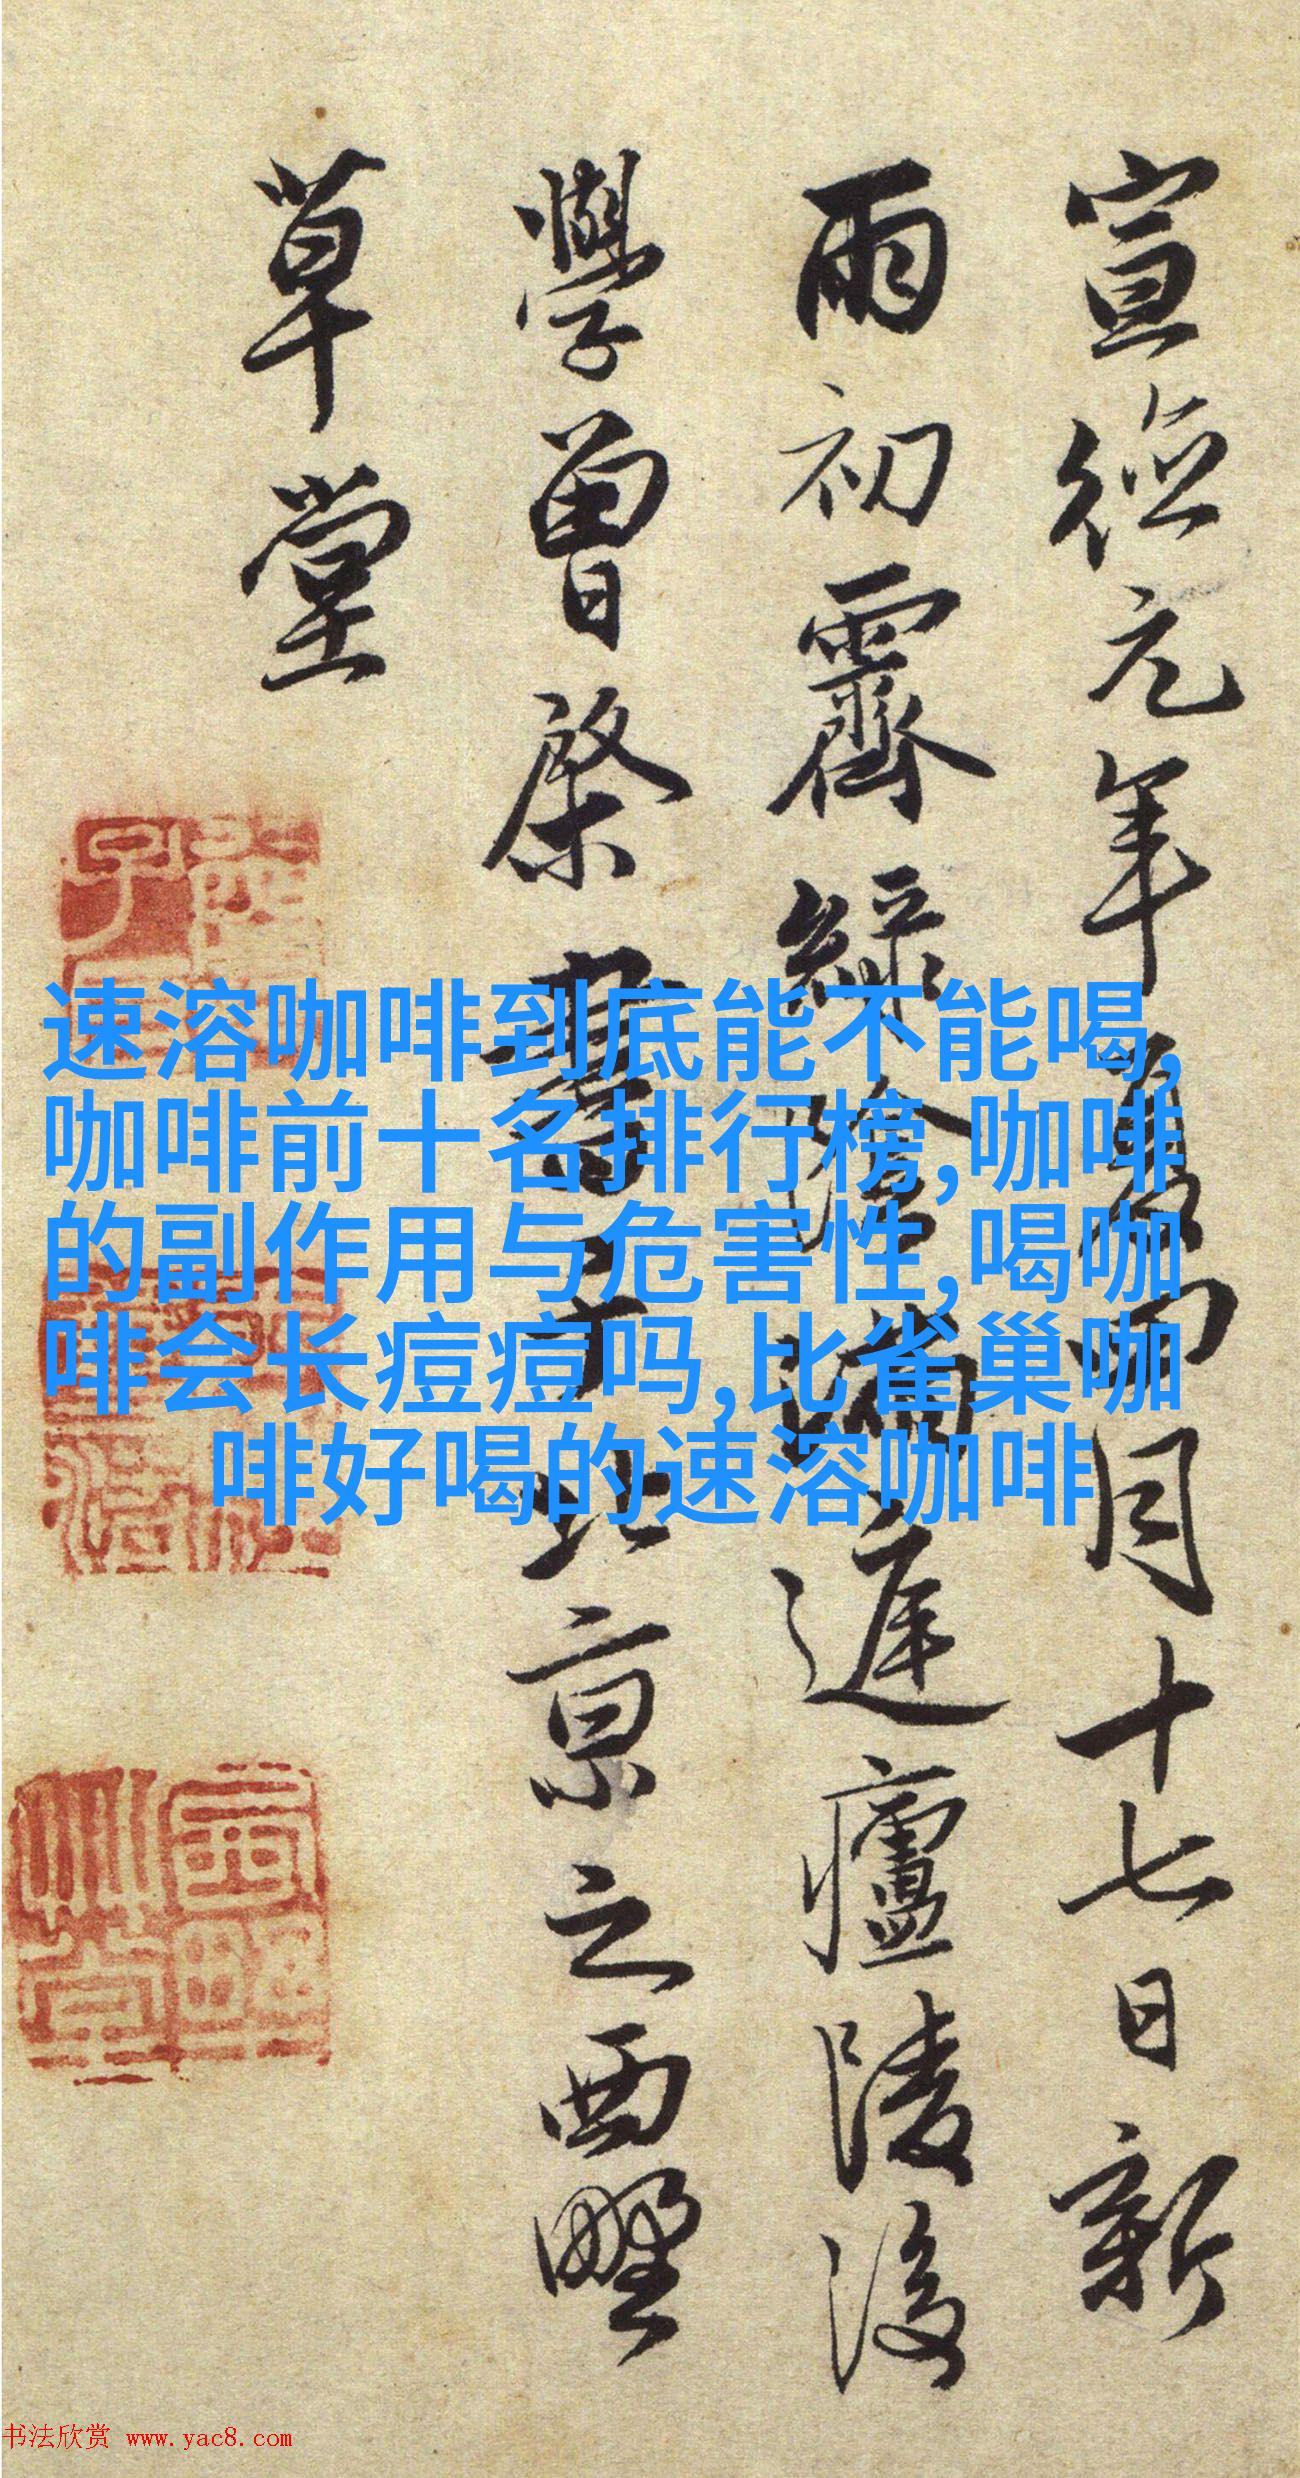 宣德元年夏四月十七日新
雨初霽綠陰滿庭廬陵後
學曾棨書于北京之西墅
草堂
速溶咖啡到底能不能喝,
咖啡前十名排行榜,咖啡
的副作用与危害性,喝咖
啡会长痘痘吗,比雀巢咖
啡好喝的速溶咖啡
书法欣赏 www.yac8.com